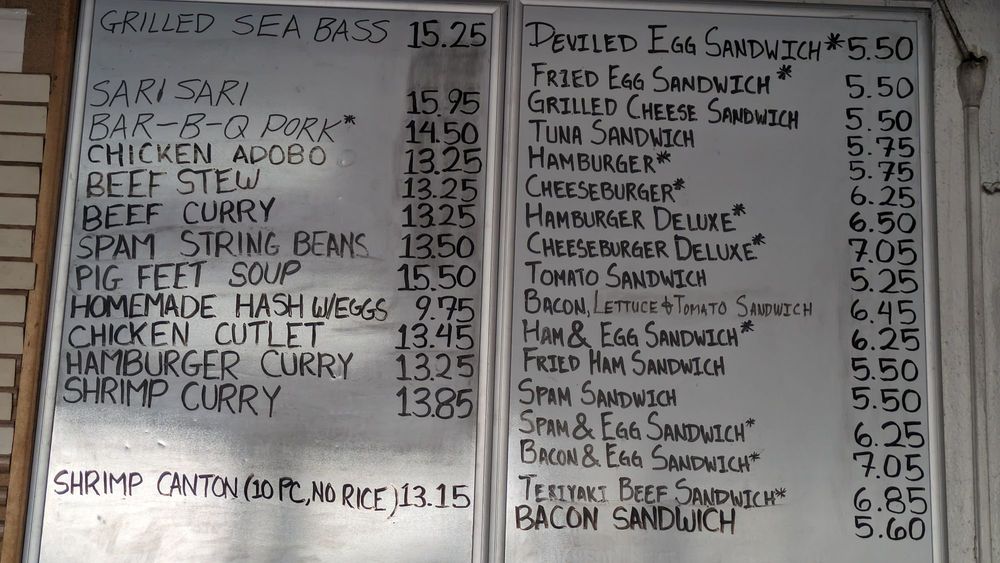 GRILLED SEA BASS 15.25
SARI SARI 15.95
BAR-B-Q PORK* 14.50
CHICKEN ADOBO 13.25
BEEF STEW 13.25
BEEF CURRY 13.25
SPAM STRING BEANS 13.50
PIG FEET SOUP 15.50
HOMEMADE HASH W/EGGS 9.75
CHICKEN CUTLET 13.45
HAMBURGER CURRY 13.25
SHRIMP CURRY 13.85
SHRIMP CANTON (10 PC, NO RICE) 13.15
DEVILED EGG SANDWICH* 5.50
FRIED EGG SANDWICH* 5.50
GRILLED CHEESE SANDWICH 5.50
TUNA SANDWICH 5.75
HAMBURGER* 5.75
CHEESEBURGER* 6.25
HAMBURGER DELUXE* 6.50
CHEESEBURGER DELUXE* 7.05
TOMATO SANDWICH 5.25
BACON, LETTUCE & TOMATO SANDWICH 6.45
HAM & EGG SANDWICH* 6.25
FRIED HAM SANDWICH 5.50
SPAM SANDWICH 5.50
SPAM & EGG SANDWICH* 6.25
BACON & EGG SANDWICH* 7.05
TERIYAKI BEEF SANDWICH* 6.85
BACON SANDWICH 5.60